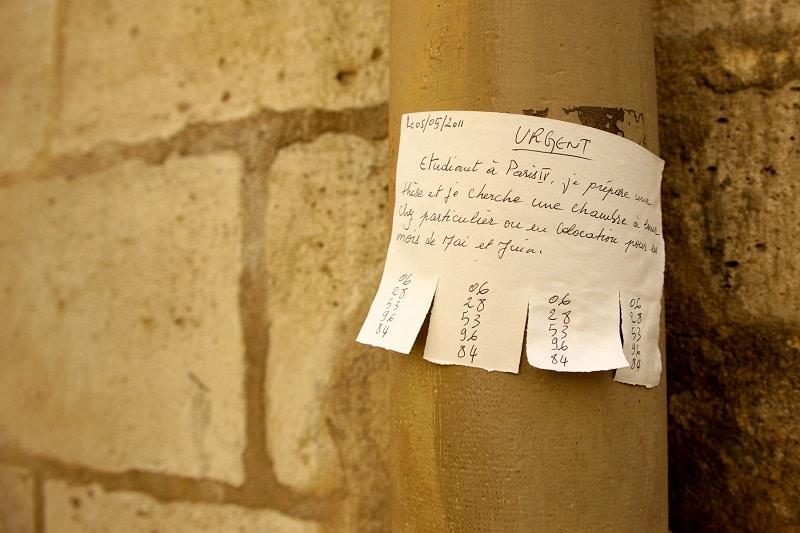 Le 05/05/2011
URGENT
Etudiant à Paris IV, je prépare une
thèse et je cherche une chambre à
chez particulier ou en colocation pour
mois de Mai et Juin.
06
28
53
96
84
06
28
53
96
84
06
28
53
96
84
06
28
53
96
84